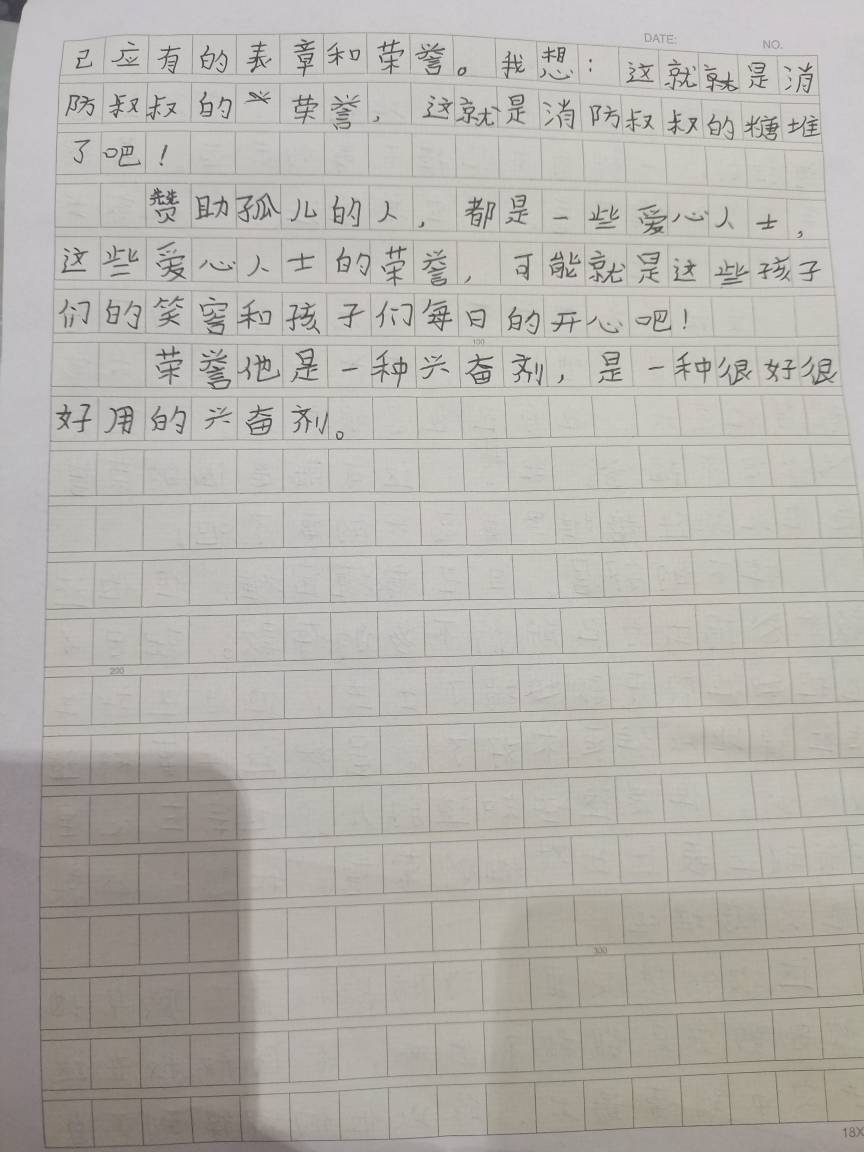 DATE:
NO.
己应有的表章和荣誉。我想：这就就是消
防叔叔的荣誉，这就是消防叔叔的糖堆
了吧！
赞助孤儿的人，都是一些爱心人士，
这些爱心人士的荣誉，可能就是这些孩子
们的笑窖和孩子们每日的开心吧！
100
荣誉他是一种兴奋剂，是一种很好很
好用的兴奋剂。
200
300
18X